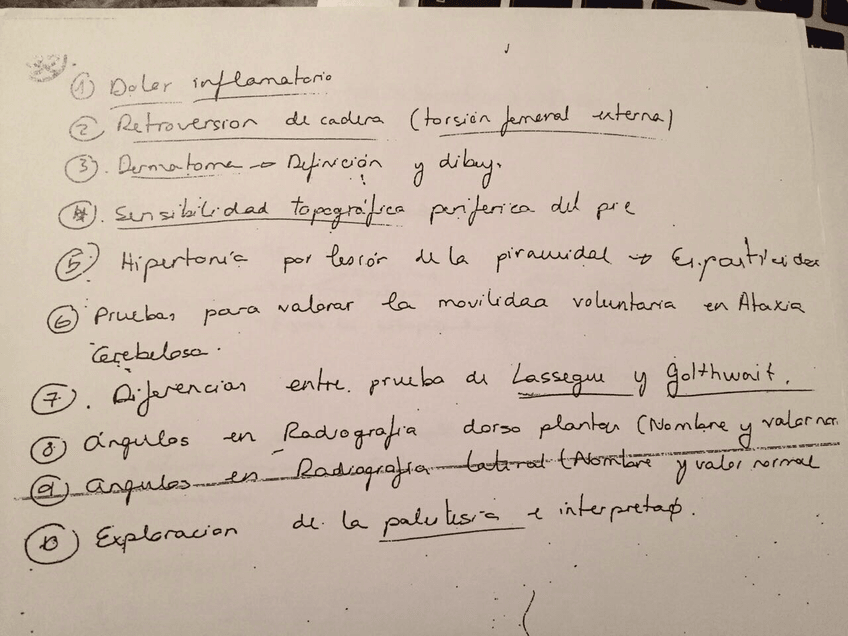 ① Dolor inflamatorio
② Retroversion de cadera (torsión femoral externa)
③. Dermatoma → Definición y dibuj.
④. Sensibilidad topográfica periferica del pie
⑤ Hipertonía por lesión de la piramidal → Espasticidad
⑥ Pruebas para valorar la movilidad voluntaria en Ataxia
Cerebelosa.
⑦. Diferencias entre prueba de Lassegue y Golthwait.
⑧ ángulos en Radiografia dorso plantar (Nombre y valor nor.
⑨ ángulos en Radiografia lateral (Nombre y valor normal
⑩ Exploracion de la palestesia e interpretac.